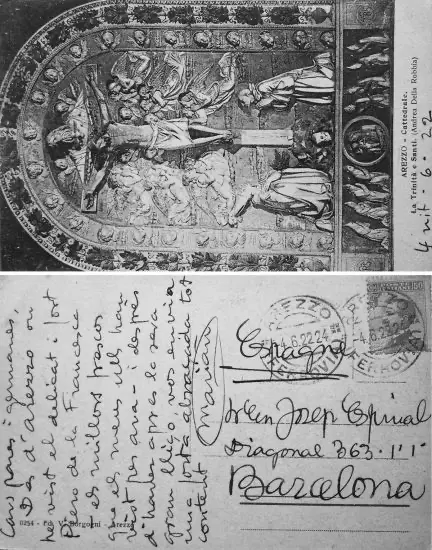 AREZZO - Cattedrale.
La Trinità e Santi. (Andrea Della Robbia)
4 nit · 6 · 22
Cars pares i germanes,
Des d'Arezzo on
he vist el delicat i fort
Piero de la Francesca
els millors frascos
que el meus ull han
vist per ara - i després
d'haver après la seva
gran lliçó, vos envia
una forta abraçada tot
content
Marian
0254 - Ed. V. Borgogni - Arezzo
AREZZO
4.6.22.24
FERROVIA
AREZZO
FERROVIA
50
Espagne
Josep Espinal
Diagonal 363 · 1er · 1ª
Barcelona